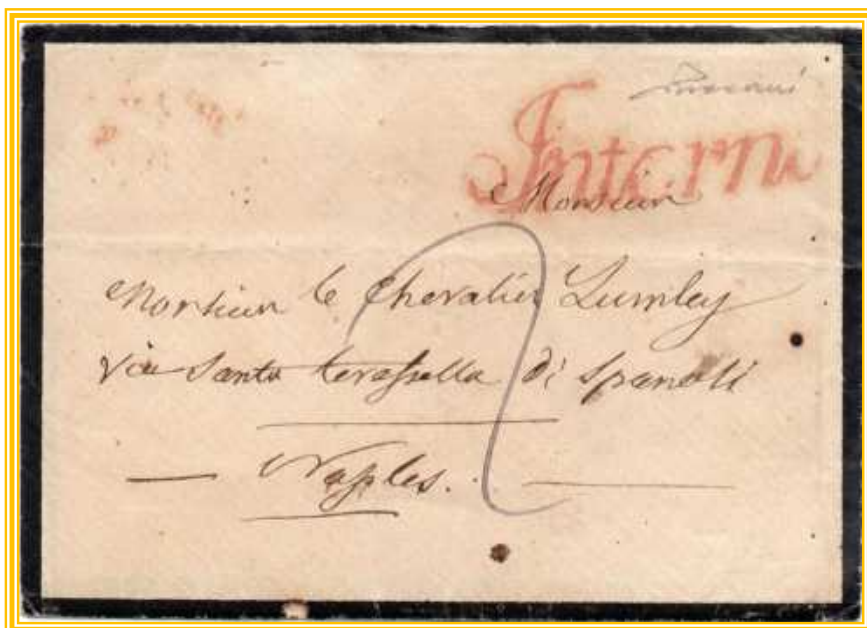 Interni
Monsieur
Monsieur le Chevalier Lumley
via Santa terassella di Spanoli
Naples.
2